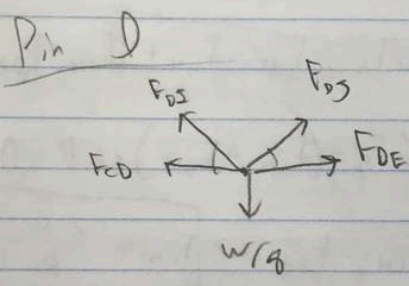 Pin D
F_DI F_DJ
F_CD F_DE
W/8